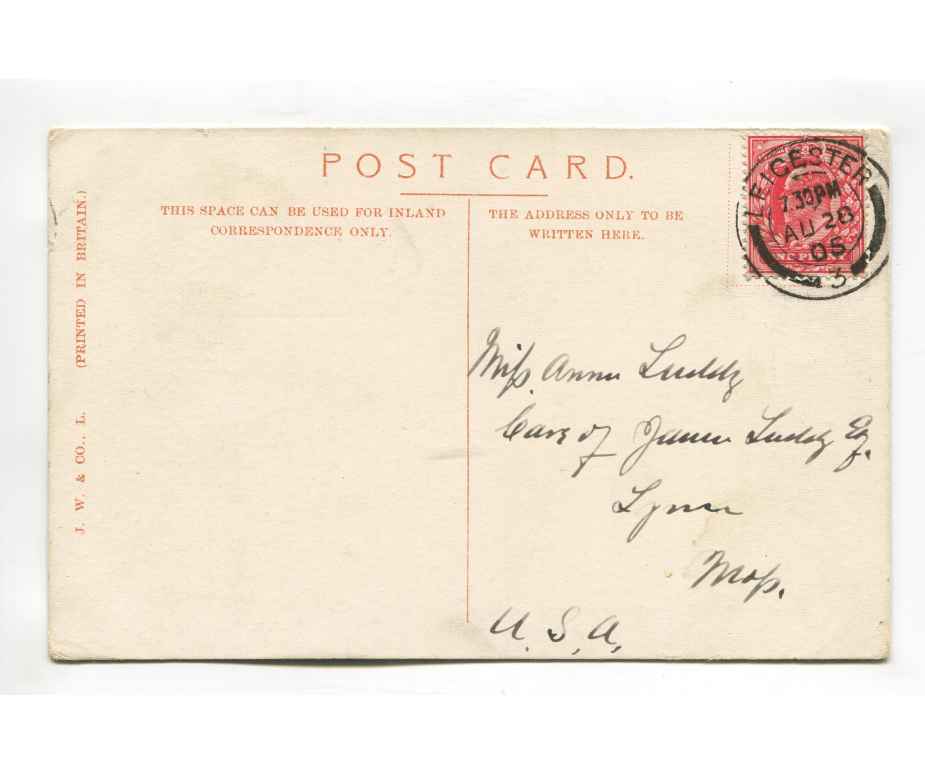 POST CARD.
THIS SPACE CAN BE USED FOR INLAND
CORRESPONDENCE ONLY.
THE ADDRESS ONLY TO BE
WRITTEN HERE.
J. W. & CO., L. (PRINTED IN BRITAIN.)
LEICESTER
7.30PM
AU 28
05
3
Miss. Annie
Care of James Esq.
Lynn
Mass.
U.S.A.